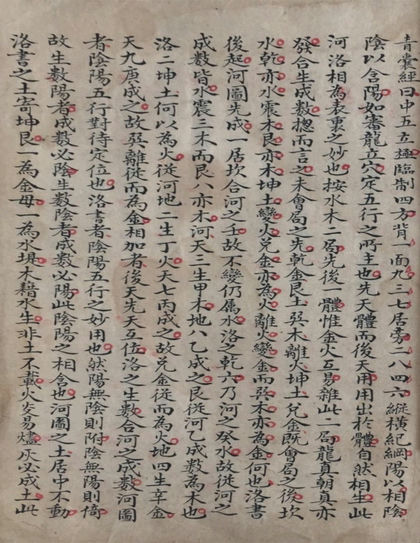 青囊經曰中五立極臨制四方背一面九三七居旁二八四六縱橫紀綱陽以相陰
陰以含陽如審龍立穴定五行之所主也先天體而後天用用出於體自然相生此
河洛相為表裏之妙也按水木二局先後一體惟金火互易雜此一局龍真朝貞亦
發合生成數揔而言之未會局之先乾金艮土巽木離火坤土兌金既會局之後坎
水乾亦水震木艮亦木坤土變火兌金亦為火離火變金而巽木亦為金何也洛書
後起河圖先成一居坎合河之壬故不變仍屬水洛之乾六乃河之癸水故從河之
成數皆水震三木而艮八亦木河天三生甲木地八乙成之艮從河乙成數為木也
洛二坤土何以為火從河地二生丁火天七丙成之故兌金從而為火地四生辛金
天九庚成之故巽離從而為金相加者後天先天五位洛之生數合河之成數河圖
者陰陽五行對待定位也洛書者陰陽五行之妙用也然陽無陰則附陰無陽則倚
故生數陽者成數必陰生數陰者成數必陽此陰陽之相含也河圖之土居中不動
洛書之土寄坤艮一為金母一為水埧木藉水生非土不載火炎易燼灰必成土此